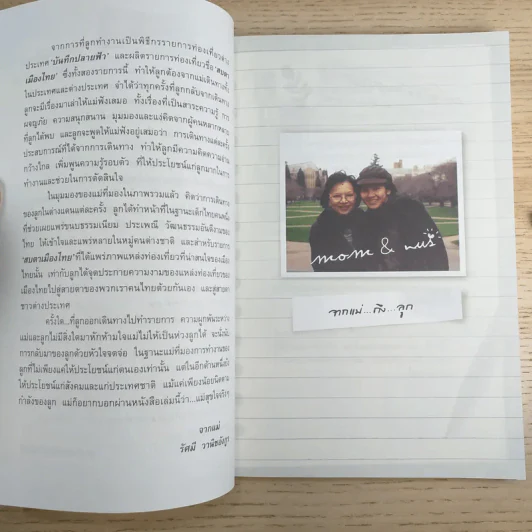 จากการที่ลูกทำงานเป็นพิธีกรรายการท่องเที่ยวต่าง
ประเทศ 'บันทึกปลายฟ้า' และผลิตรายการท่องเที่ยวชื่อ 'สบตา
เมืองไทย' ซึ่งทั้งสองรายการนี้ ทำให้ลูกต้องจากแม่เดินทางทั้ง
ในประเทศและต่างประเทศ จำได้ว่าทุกครั้งที่ลูกกลับจากเดินทาง
ลูกจะมีเรื่องมาเล่าให้แม่ฟังเสมอ ทั้งเรื่องที่เป็นสาระความรู้ การ
ผจญภัย ความสนุกสนาน มุมมองและแง่คิดจากผู้คนหลากหลาย
ที่ลูกได้พบ และลูกจะพูดให้แม่ฟังอยู่เสมอว่า การเดินทางแต่ละครั้ง
ประสบการณ์ที่ได้จากการเดินทาง ทำให้ลูกมีความคิดความอ่าน
กว้างไกล เพิ่มพูนความรู้รอบตัว ที่ให้ประโยชน์แก่ลูกมากในการ
ทำงานและช่วยในการตัดสินใจ
ในมุมมองของแม่ที่มองในภาพรวมแล้ว คิดว่าการเดินทาง
ของลูกในต่างแดนแต่ละครั้ง ลูกได้ทำหน้าที่ในฐานะเด็กไทยคนหนึ่ง
ที่ช่วยเผยแพร่ขนบธรรมเนียม ประเพณี วัฒนธรรมอันดีงามของ
ไทย ให้เข้าใจและแพร่หลายในหมู่คนต่างชาติ และสำหรับรายการ
'สบตาเมืองไทย' ที่ได้แพร่ภาพแหล่งท่องเที่ยวที่น่าสนใจของเมือง
ไทยนั้น เท่ากับลูกได้จุดประกายความงามของแหล่งท่องเที่ยวของ
เมืองไทยไปสู่สายตาของพวกเราคนไทยด้วยกันเอง และสู่สายตา
ชาวต่างประเทศ
ครั้งใด...ที่ลูกออกเดินทางไปทำรายการ ความผูกพันระหว่าง
แม่และลูกไม่มีสิ่งใดมาหักห้ามใจแม่ไม่ให้เป็นห่วงลูกได้ จะนั่งนับ
การกลับมาของลูกด้วยหัวใจจดจ่อ ในฐานะแม่ที่มองการทำงานของ
ลูกที่ไม่เพียงแค่ให้ประโยชน์แก่ตนเองเท่านั้น แต่ในอีกด้านหนึ่งยัง
ให้ประโยชน์แก่สังคมและแก่ประเทศชาติ แม้แค่เพียงน้อยนิดตาม
กำลังของลูก แม่ก็อยากบอกผ่านหนังสือเล่มนี้ว่า...แม่สุขใจจริงๆ
จากแม่
รัศมี
mom &
จากแม่...ถึง...ลูก